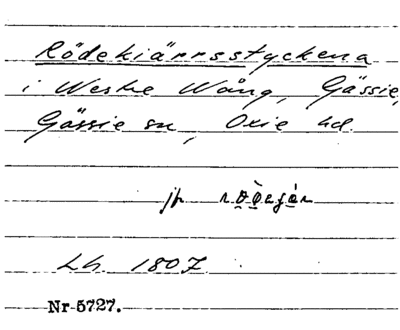 Rödekiärrsstyckena
i Westre Wång, Gässie,
Gässie sn, Oxie hd.
jfr
Lh. 1807
Nr 5727.